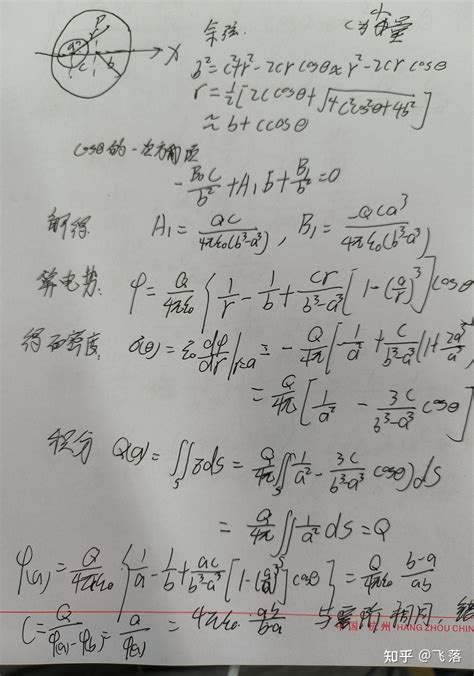 P
a
c
b
x
余弦 c为小量
b²=c²+r²-2cr cosθ≈r²-2cr cosθ
r=½[2c cosθ+√4c²cos²θ+4b²]
≈b+c cosθ
cosθ的一次方项
-B₀c/b²+A₁b+B₁/b²=0
解得 A₁=Qc/4πε₀(b³-a³), B₁=-Qca³/4πε₀(b³-a³)
算电势: φ=Q/4πε₀{1/r-1/b+cr/b³-a³[1-(a/r)³]cosθ
得面密度, σ(θ)=ε₀dφ/dr|r=a=-Q/4π[-1/a²+c/b³-a³(1+2a³/a³
=Q/4π[1/a²-3c/b³-a³cosθ]
积分 Q(a)=∬ₛσds=Q/4π∬ₛ(1/a²-3c/b³-a³cosθ)ds
=Q/4π∬1/a²ds=Q
φ(a)=Q/4πε₀{1/a-1/b+ac/b³-a³[1-(a/a)³]cosθ}=Q/4πε₀ b-a/ab
C=Q/φ(a)-φ(b)=Q/φ(a)=4πε₀·ab/b-a 与零阶相同,
中国·杭州 HANG ZHOU CHIN
知乎 @飞落